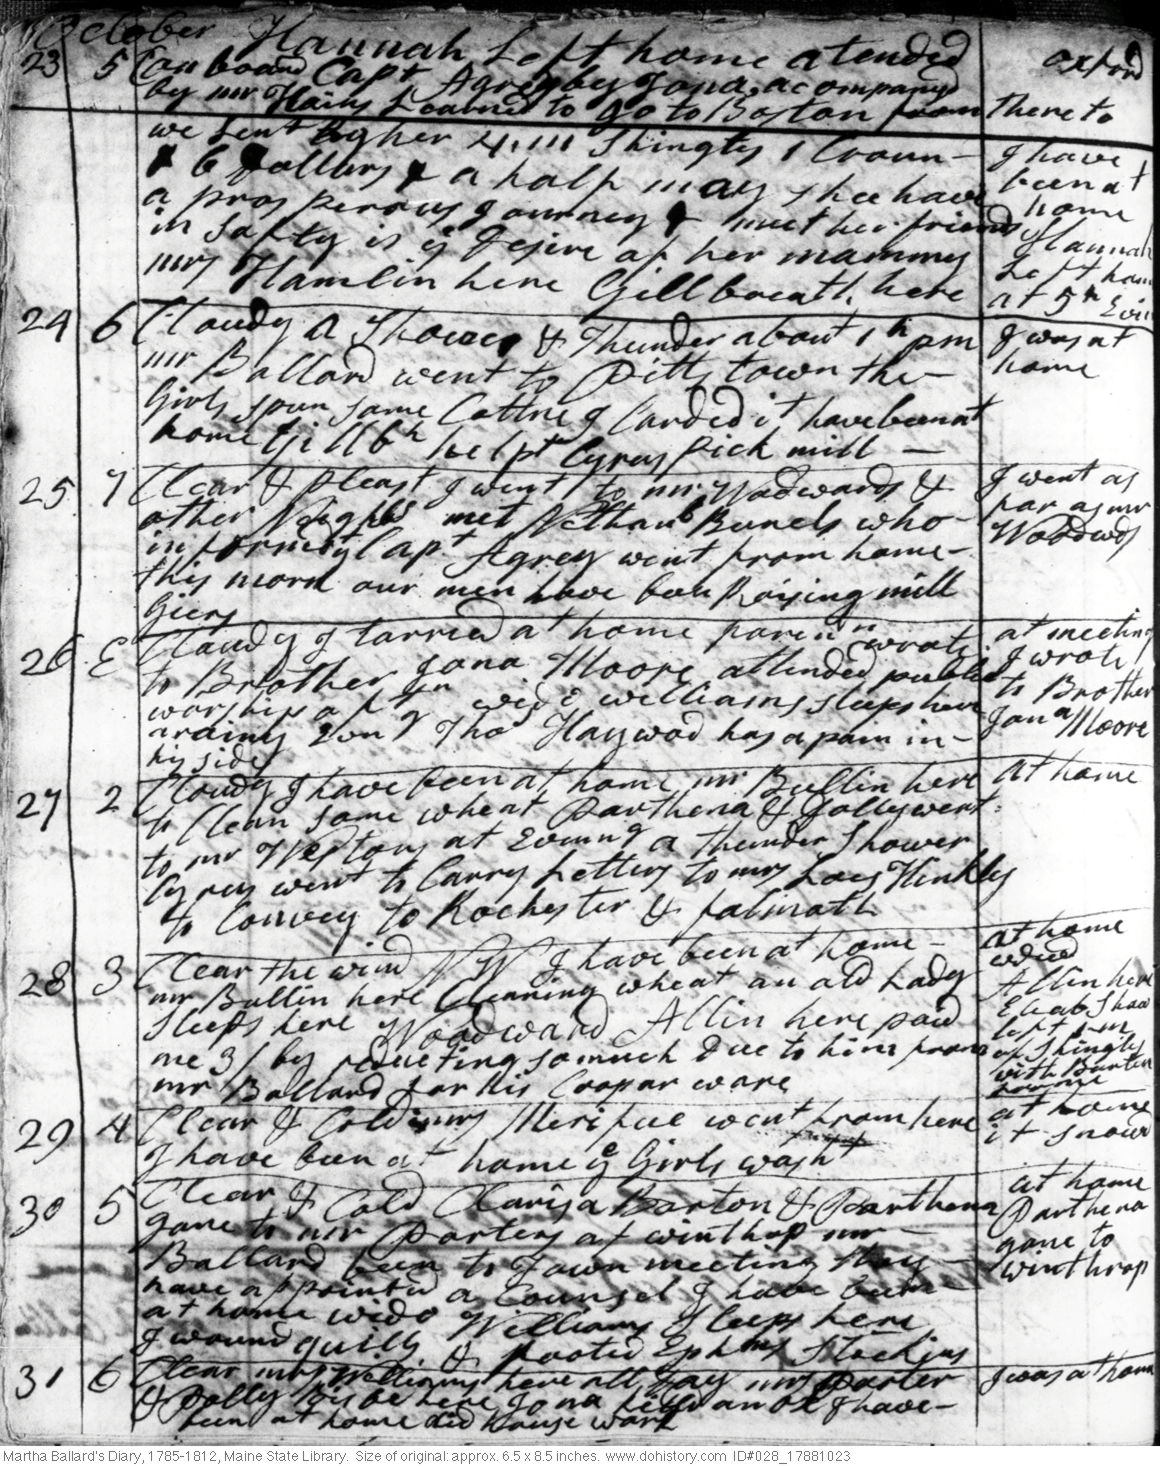 October Hannah Left home atended oxford
23 5 on board Capt Agreyby Jona, acompany
by mr Hains Learnd to go to Boston from there to
we sent by her 4 m Shingles 1 Croun I have
& 6 Dollars & a half may shee have been at
a prosperous Journey & meet her friends home
in Safty is ye Desire of her mammy Hannah
mrs Hamlin here Gillbreath here Left hom
at 5 h Evin
24 6 Cloudy a Shower & Thunder about 1 h pm I was at
mr Ballard went to Pitts town the home
Girls spun some Cottne & Carded it have been at
home Gillbh helpt Cyrus Pick mill
25 7 Clear & Pleast I went to mr Woodwards & I went as
other Neighbs met Nathanl Burrels who far as mr
informs Capt Agrey went from home Woodwds
this morn our men have ben Raising mill
Giers
26 E Cloudy I tarried at home foren n wrote at meeting
to Brother Jona Moore attended publick I wrote
worship af n wido williams sleeps here to Brother
arainy Evng Tho Haywod has a pain in Jona Moore
his side
27 2 Cloudy I have been at home mr Bullin here at home
to Clean some wheat Parthena & Dolly went
to mr Westons at Evening a thunder Shower
Cyrus went to Carry Letters to mrs Loes Hinkly
to Convey to Rochester & falmoth
28 3 Clear the wind NW I have been at home at home
mr Bullin here Cleaning wheat an old Lady wido
Sleeps here Woodward Allin here paid Allin here
me 3/ by reducting so much Due to him from Elias Shaw
mr Ballard for his Coopar ware left 1 m
of Shingles
with Burton
29 4 Clear & Cold mrs Merifue went from here at home
I have been at home ye Girls washt it snowd
30 5 Clear & Cold Clarisa Barton & Parthena at home
gone to mr Porters at winthrop mr Parthena
Ballard been to Town meeting they gone to
have appointed a Counsel I have been winthrop
at home wido Williams Sleeps here
I wound quills & footed Ephms Stockins
31 6 Clear mrs Williams here all Day mrs Porter I was at home
& Polly here Jona I have
been at home did house work
Martha Ballard's Diary, 1785-1812, Maine State Library. Size of original: approx. 6.5 x 8.5 inches. www.dohistory.com ID#028_17881023